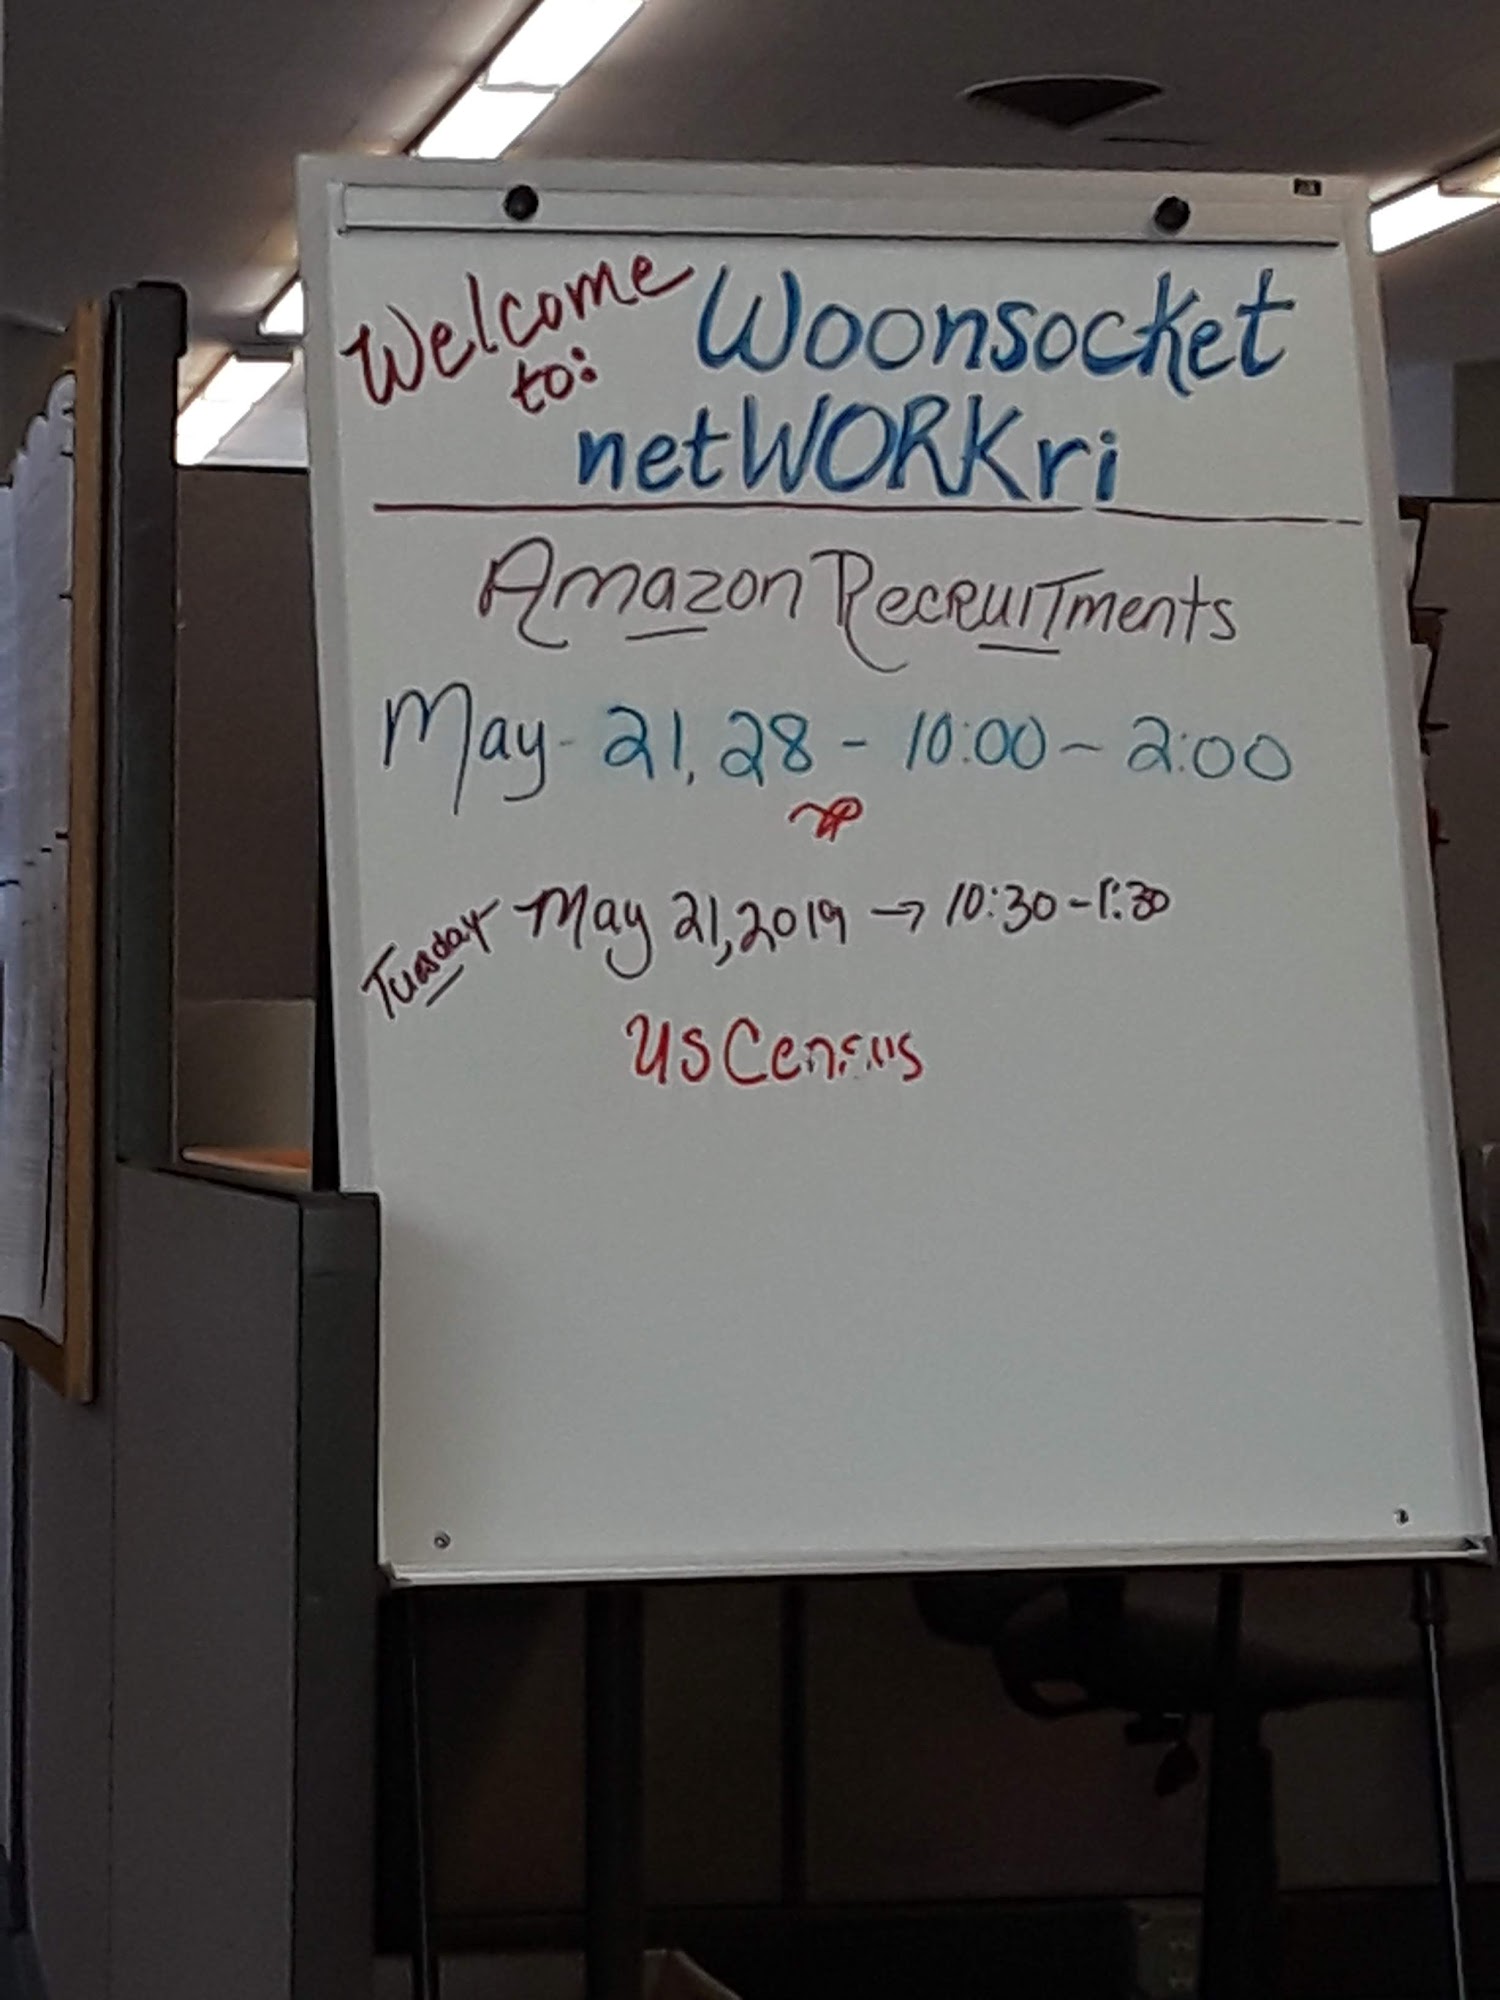 Welcome to: Woonsocket
netWORKri
Amazon Recruitments
May - 21, 28 - 10:00 - 2:00
Tuesday May 21, 2019 → 10:30 - 1:30
US Census